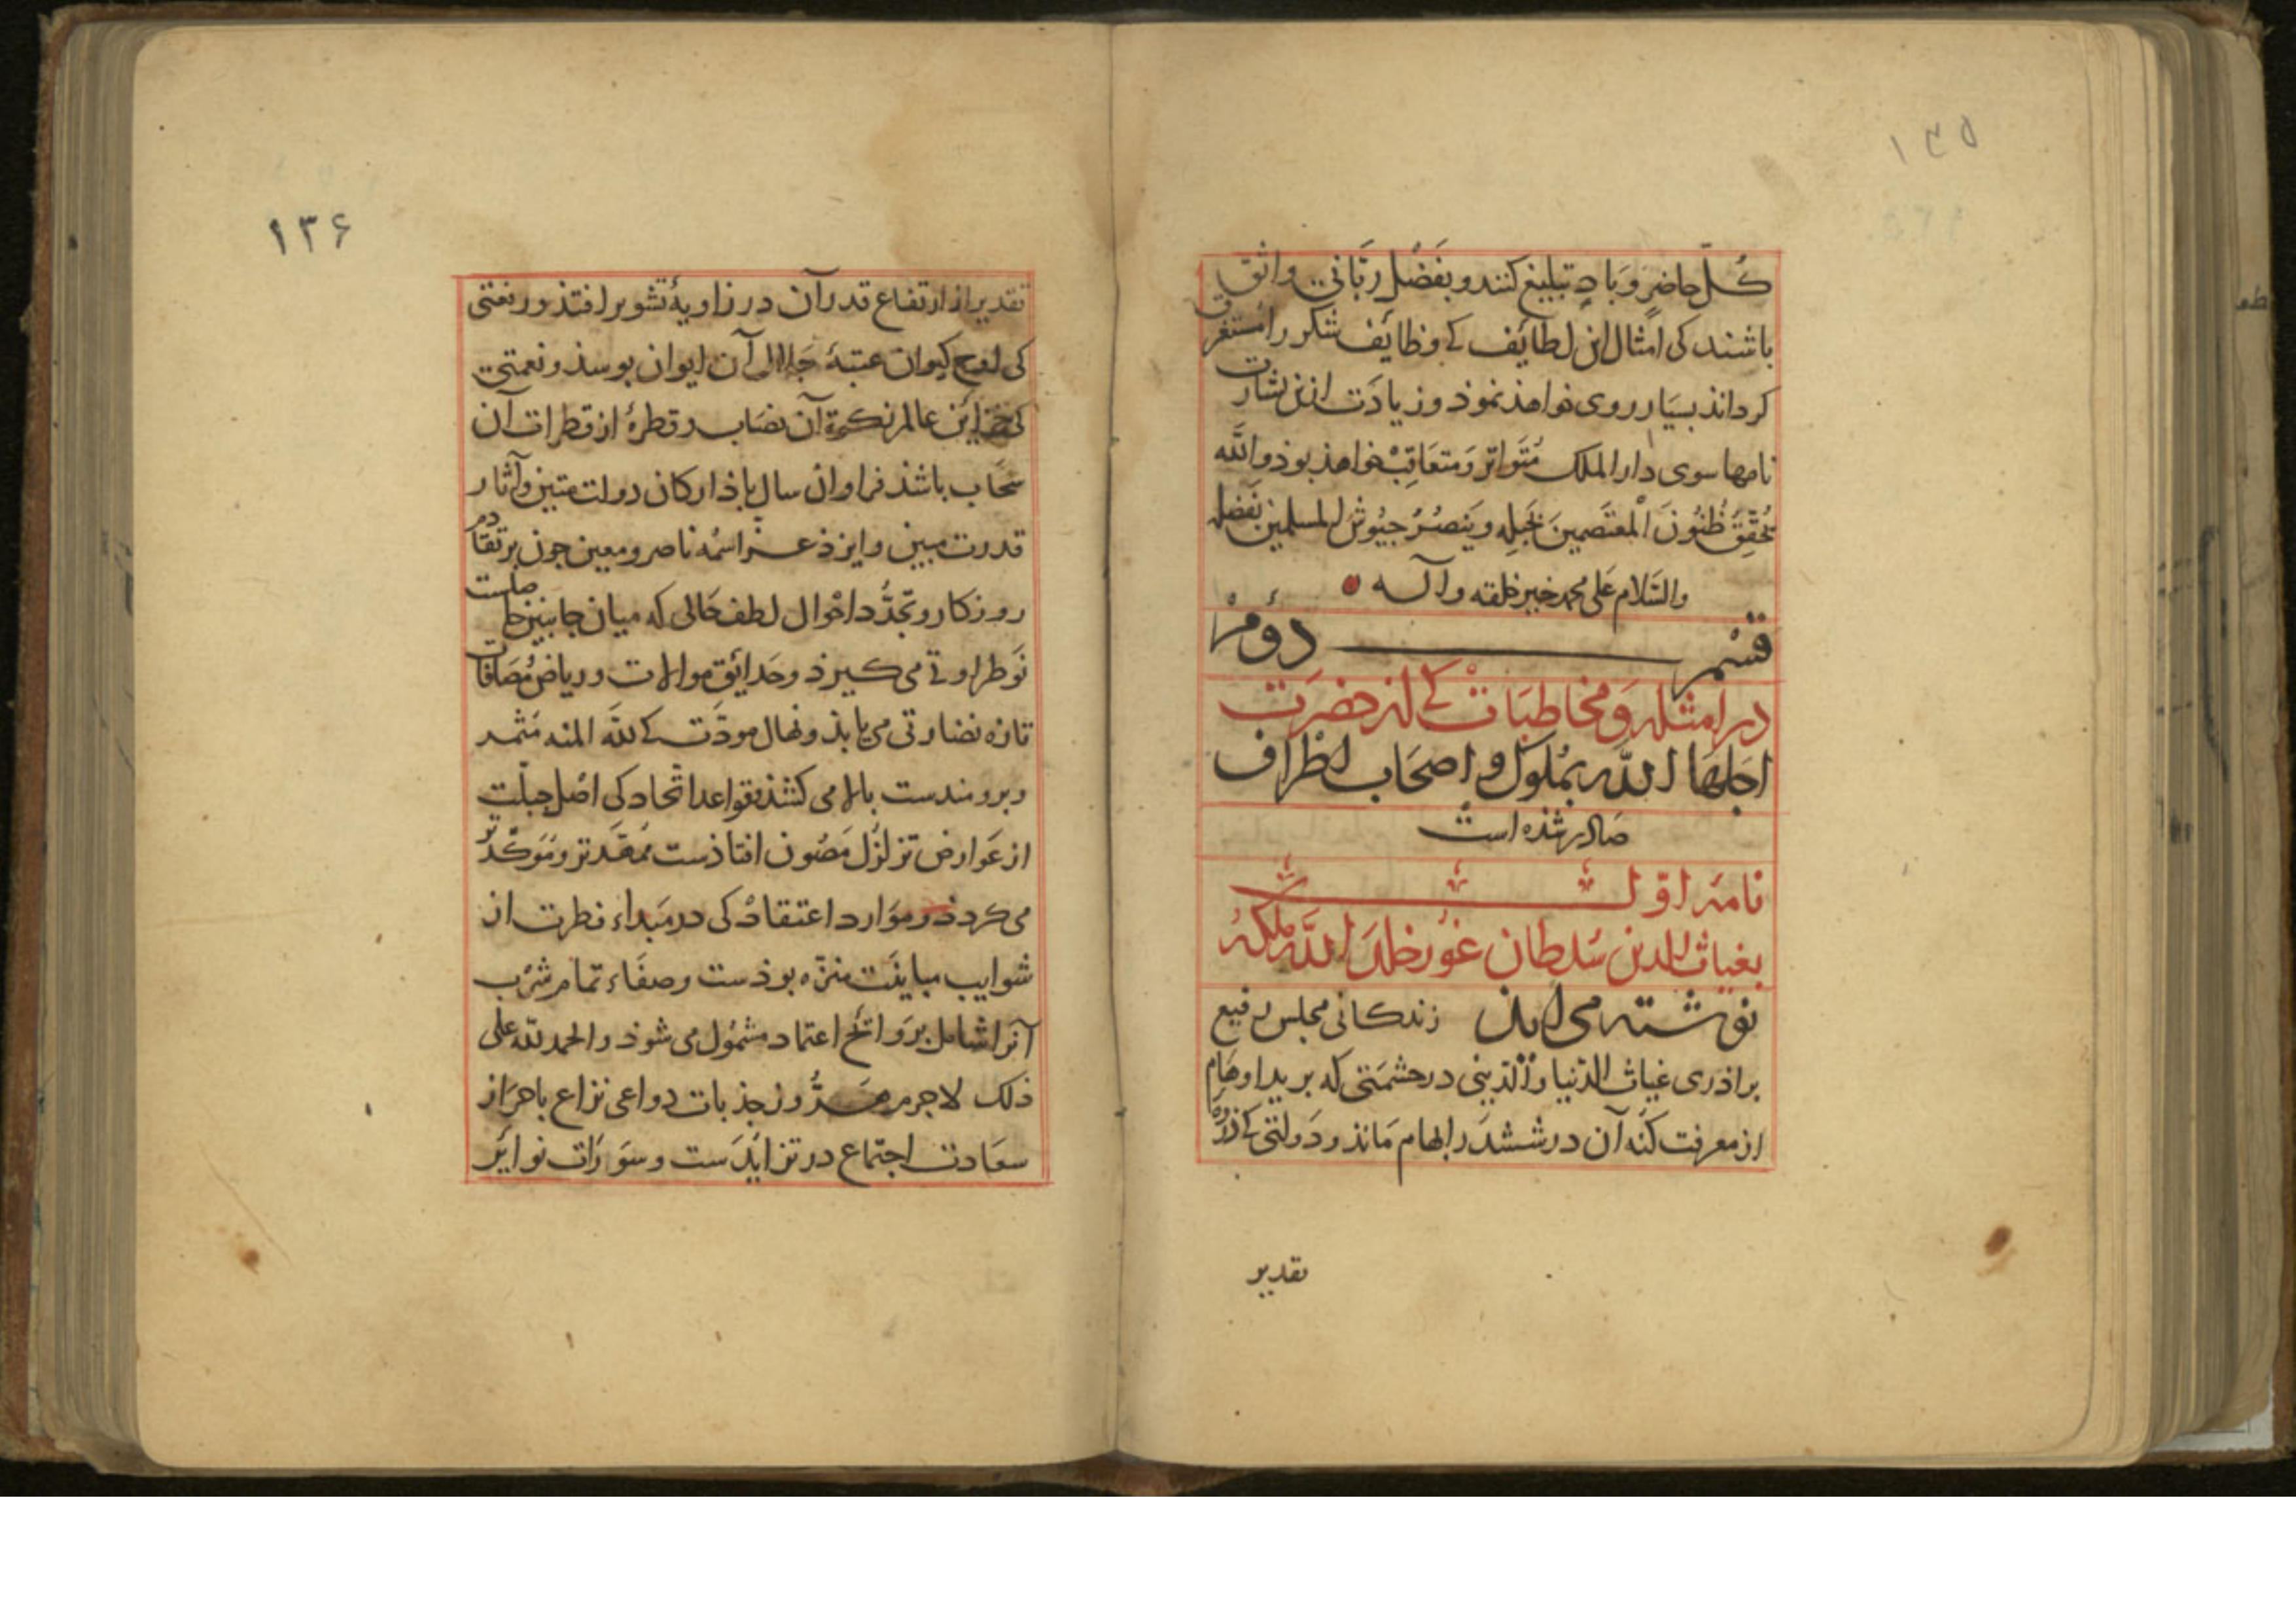 ۱۳۵
کُلّ حاضرٍ وَبادٍ تبلیغ کنند و بفَضْل ربّانی واثق
باشند کی امثال این لطائف کے وظائف شکر را مستغرق
کرداند بسیار روی خواهذ نموذ و زیادَت ازین بشارت
نامها سوی دار الملک مُتَواتر وَ متعَاقِبْ خواهذ بوذ والله
تُحَقِّق ظُنُونَ الْمُعْتَصِمینَ بحَبلِه و یَنصُرُ جیُوش المسلمین بفَضله
والسّلام عَلی محمد خیر خلقه وآله
قسْم دوُمْ
در امثله وَ مخاطبَات کے از حضرَت
اجلها الله بمُلوک و اصحَاب اطراف
صَادر شذه است
نامهٔ اوّل
بغیاث الدین سُلطان غوُر خلدَ الله ملکهُ
نوشته می اید زندکانی مجلس رفیع
براذری غیاث الدّنیا والدّینی در حشمَتی که برید اوهَام
از معرفت کنه آن در ششدَر ابهام مَانذ و دَولتی کے ذروهٔ
تقدیر
۱۳۶
تقدیر از ارتفاع قدر آن در زاویهٔ تشویر افتذ و رفعتی
کی اوج کیوان عتبهٔ جَلال آن ایوان بوسذ و نعمتی
کی خزاین عالم زکوة آن نصَاب و قطرهٔ از قطرات آن
سَحَاب باشذ فراوان سال باذ ارکان دولت متین و آثار
قدرت مبین و ایزذ عزّ اسمُه ناصر و معین جون بر تقادم
روزکار و تجدُّد احْوال لطف حَالی که میان جانبین حاصلست
نَو طراوتی می کیرذ و حَدائق موالات و ریاض مُصَافات
تازه نضارتی می یابذ و نهال مودّت کے لله المنه مثمر
و برومندست بالا می کشذ و قواعد اتّحاد کی اصْل جبلّت
از عَوارض تزلزُل مَصُون افتاذست مُمَهَّد تر و مُوَکّد تر
می کردذ و موَارد اعتقاد کی در مبداء فطرت از
شوایب مباینَت منزّه بوذست و صفَاء تمام شرْب
آنرا شامل بروَائح اعتماد مشمُول می شوذ والحمد لله علی
ذلک لاجرم جذبات دواعی نزاع باحرَاز
سعَادت اجتماع در تزایُدَست و سوَرَات نوایُر